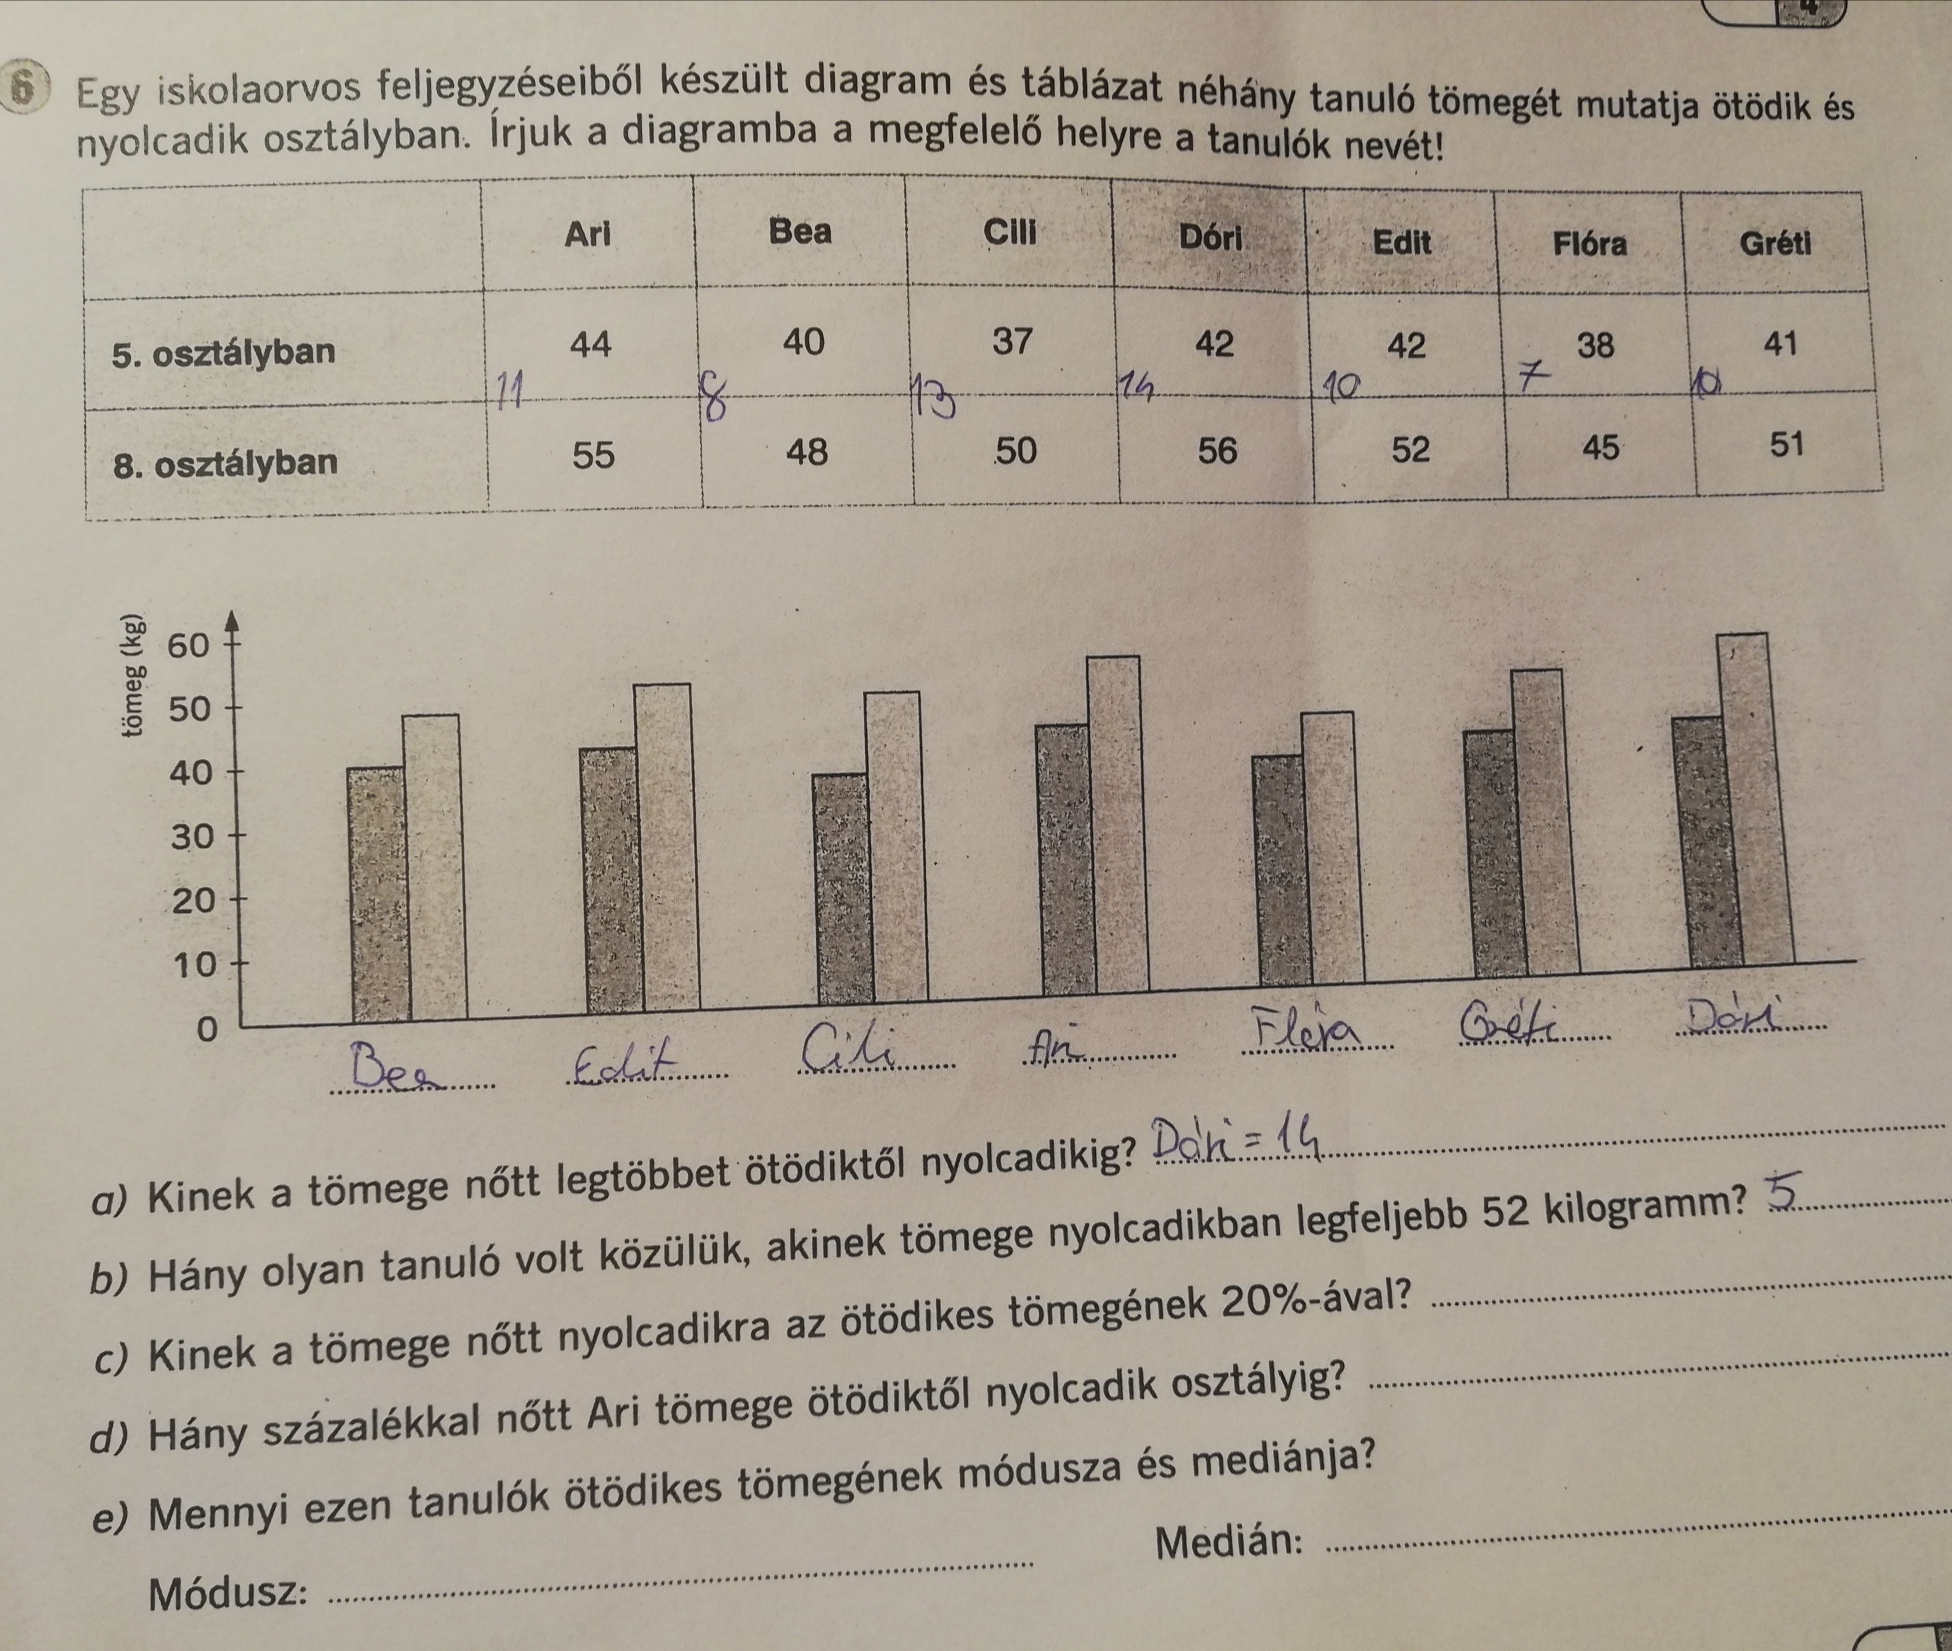 4
6 Egy iskolaorvos feljegyzéseiből készült diagram és táblázat néhány tanuló tömegét mutatja ötödik és
nyolcadik osztályban. Írjuk a diagramba a megfelelő helyre a tanulók nevét!
Ari Bea Cili Dóri Edit Flóra Gréti
5. osztályban 44 40 37 42 42 38 41
11 8 13 14 10 7 10
8. osztályban 55 48 50 56 52 45 51
tömeg (kg)
60
50
40
30
20
10
0
Bea Edit Cili Ari Flóra Gréti Dóri
a) Kinek a tömege nőtt legtöbbet ötödiktől nyolcadikig? Dóri = 14
b) Hány olyan tanuló volt közülük, akinek tömege nyolcadikban legfeljebb 52 kilogramm? 5
c) Kinek a tömege nőtt nyolcadikra az ötödikes tömegének 20%-ával?
d) Hány százalékkal nőtt Ari tömege ötödiktől nyolcadik osztályig?
e) Mennyi ezen tanulók ötödikes tömegének módusza és mediánja?
Módusz: Medián: